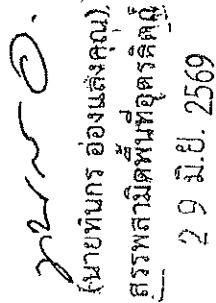 (นายทินกร อ่องแสงคุณ)
สรรพสามิตพื้นที่อุตรดิตถ์
29 มิ.ย. 2569